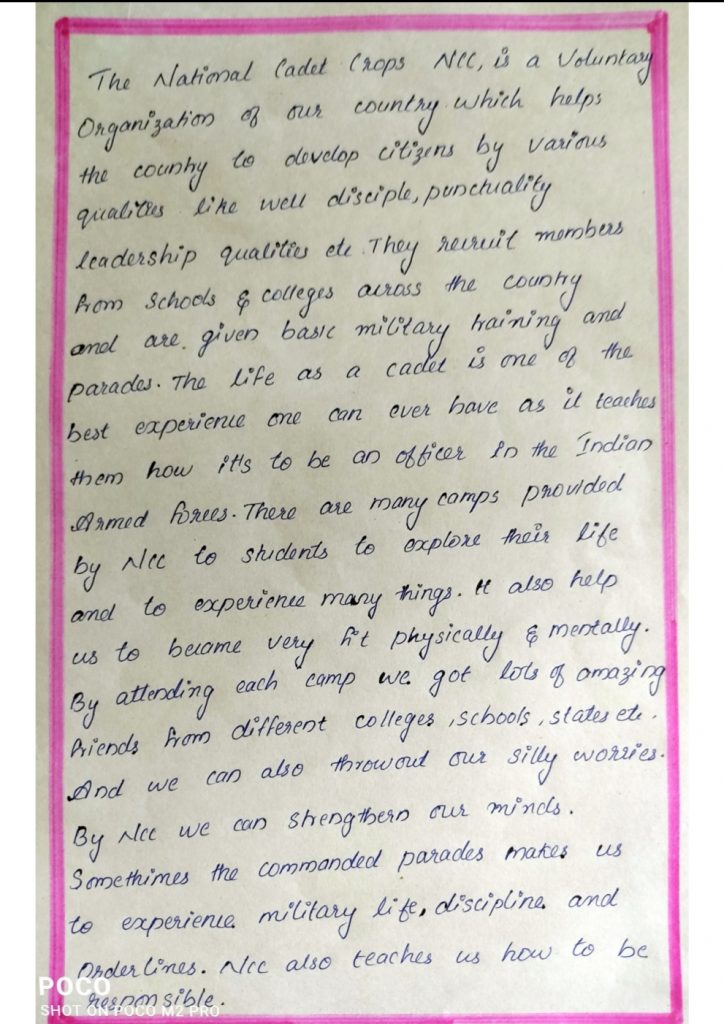 The National Cadet Crops NCC, is a Voluntary
Organization of our country which helps
the country to develop citizens by various
qualities like well disciple, punctuality
leadership qualities etc. They recruit members
from schools & colleges across the country
and are given basic military training and
parades. The life as a cadet is one of the
best experience one can ever have as it teaches
them how it's to be an officer in the Indian
Armed forces. There are many camps provided
by Ncc to students to explore their life
and to experience many things. It also help
us to became very fit physically & mentally.
By attending each camp we got lots of amazing
friends from different colleges, schools, states etc.
And we can also throwout our silly worries.
By Ncc we can strengthern our minds.
Somethimes the commanded parades makes us
to experience military life, discipline and
orderlines. Ncc also teaches us how to be
responsible.
POCO
SHOT ON POCO M2 PRO